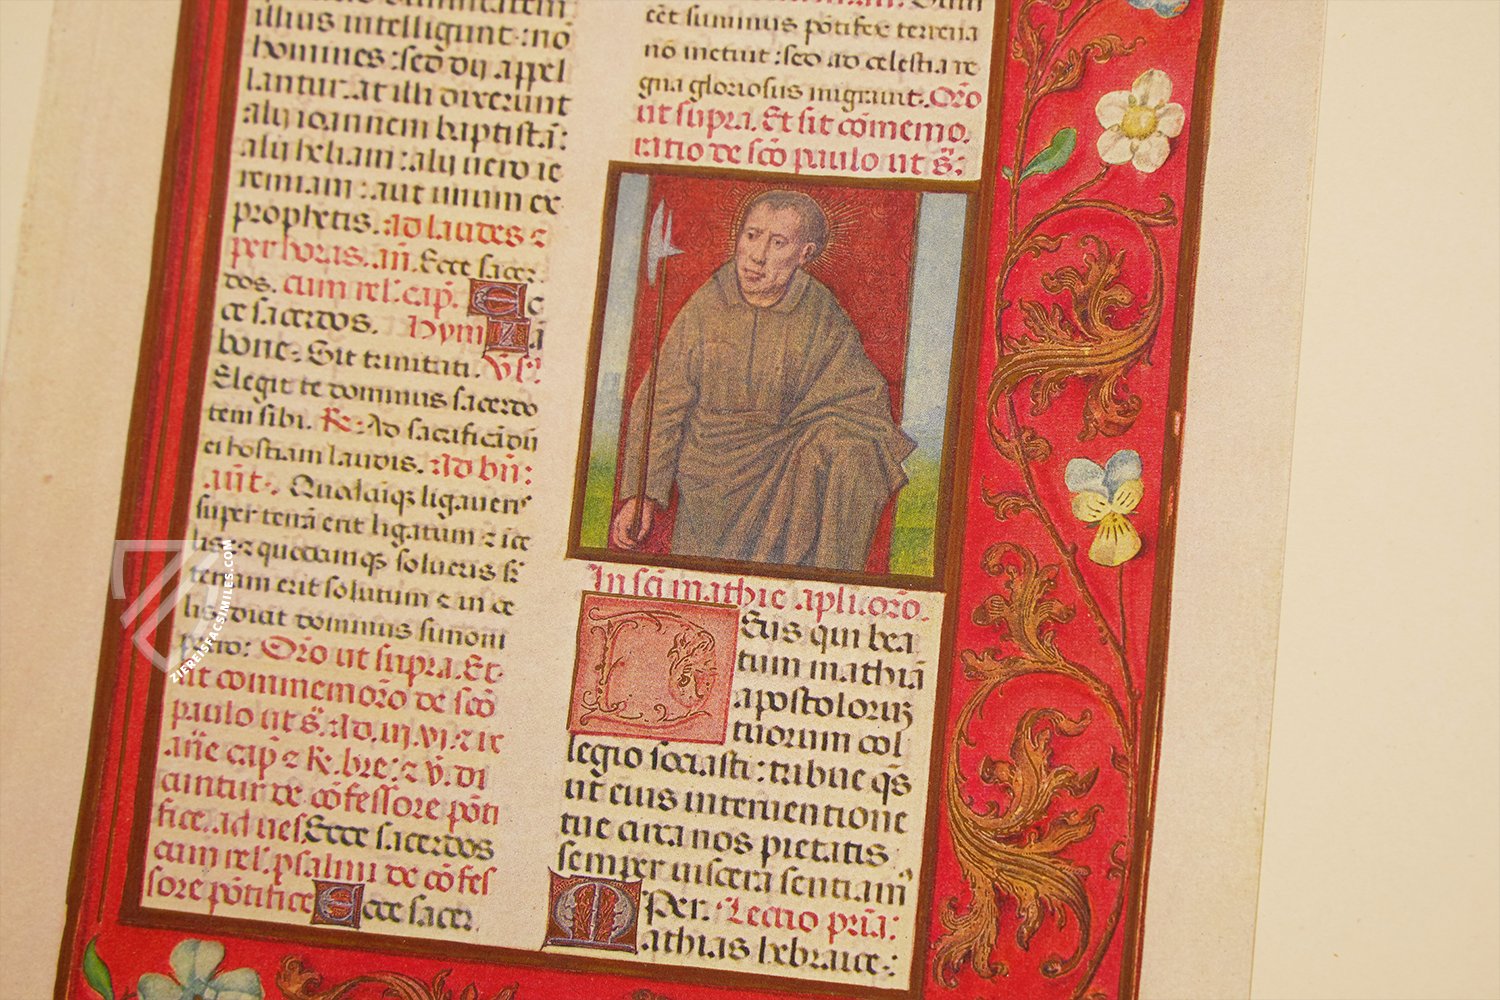 illius intelligunt: nō
homines: sed dij appel
lantur. at illi dixerunt
alij ioannem baptistā:
alij heliam: alij uero ie
remiam: aut unum ex
prophetis. ad laudes ⁊
per horas. añ. Ecce sacer
dos. cum rel'. cap. Ec
ce sacerdos. Hym
bone. Sit trinitati.
Elegit te dominus sacerdo
tem sibi. R. Ad sacrificādū
ei hostiam laudis. ad bñ:
añt. Quodcūq; ligaueris
super terrā erit ligatum ⁊ i ce
lis: ⁊ quodcumq; solueris sr̄
terram erit solutum ⁊ in ce
lis: dixit dominus simoni
petro: Oro ut supra. Et
sit commemorō de scō
paulo ut s̄. Ad. iij. vi. ⁊ ix
añe cap ⁊ R. bre: ⁊ V. di
cuntur de cōfessore pōti
fice. ad ues Ecce sacerdos
cum rel'. psalmi de cōfes
sore pōtifice Ecce sacer
eēt summus pōtifex terrena
nō metuit: sed ad celestia re
gna gloriosus migrauit. Orō
ut supra. Et sit cōmemo
ratio de scō paulo ut s̄:
In sci mathie apli. orō.
Deus qui bea
tum mathiā
apostoloruȝ
tuorum col
legio sociasti: tribue qs̄
ut eius interuentione
tue circa nos pietatis
semper uiscera sentiam'
Per. Lectio prīa:
Mathias hebraice:
ZIEREISFACSIMILES.COM